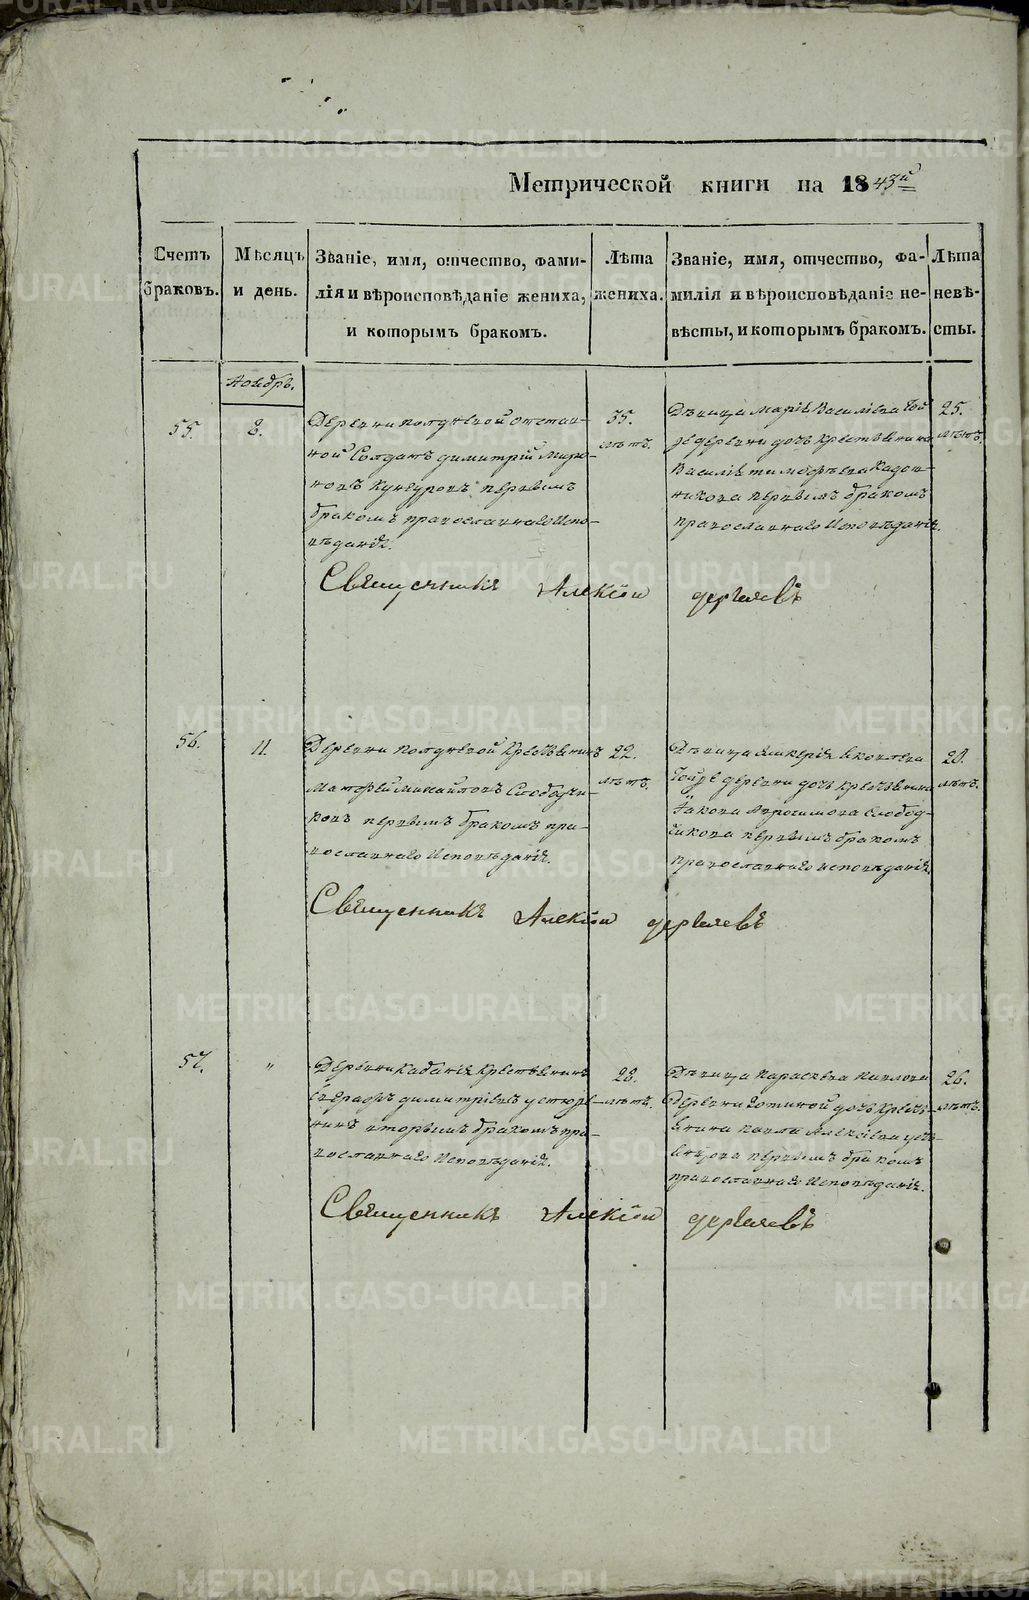 Метрической книги на 1843й
Счетъ браковъ.
Мѣсяцъ и день.
Званіе, имя, отчество, фами-
лія и вѣроисповѣданіе жениха,
и которымъ бракомъ.
Лѣта
жениха.
Званіе, имя, отчество, фа-
милія и вѣроисповѣданіе не-
вѣсты, и которымъ бракомъ.
Лѣта
невѣ-
сты.
Ноябрь.
55.
8.
Деревни Полдневой отстав-
ной Солдатъ Димитрій Миро-
новъ первымъ
бракомъ православнаго испо-
вѣданія.
35.
лѣтъ.
Дѣвица Марія Васильева той
же деревни дочь крестьянина
Василія
первымъ бракомъ
православнаго исповѣданія.
25.
лѣтъ.
Священникъ Алексій Дергачевъ
56.
11.
Деревни Полдневой крестьянинъ
Матфей Михайловъ Слободчи-
ковъ первымъ бракомъ пра-
вославнаго исповѣданія.
22.
лѣтъ.
Дѣвица Гликерія Яковлева
тойже деревни дочь крестьянина
Іакова Слобод-
чикова первымъ бракомъ
православнаго исповѣданія.
20.
лѣтъ.
Священникъ Алексій Дергачевъ
57.
"
Деревни крестьянинъ
Евграфъ Димитріевъ
вторымъ бракомъ пра-
вославнаго исповѣданія.
28.
лѣтъ.
Дѣвица Параскева Павлова
Деревни дочь кресть-
янина Павла Алексіева
первымъ бракомъ
православнаго исповѣданія.
26.
лѣтъ.
Священникъ Алексій Дергачевъ
METRIKI.GASO-URAL.RU